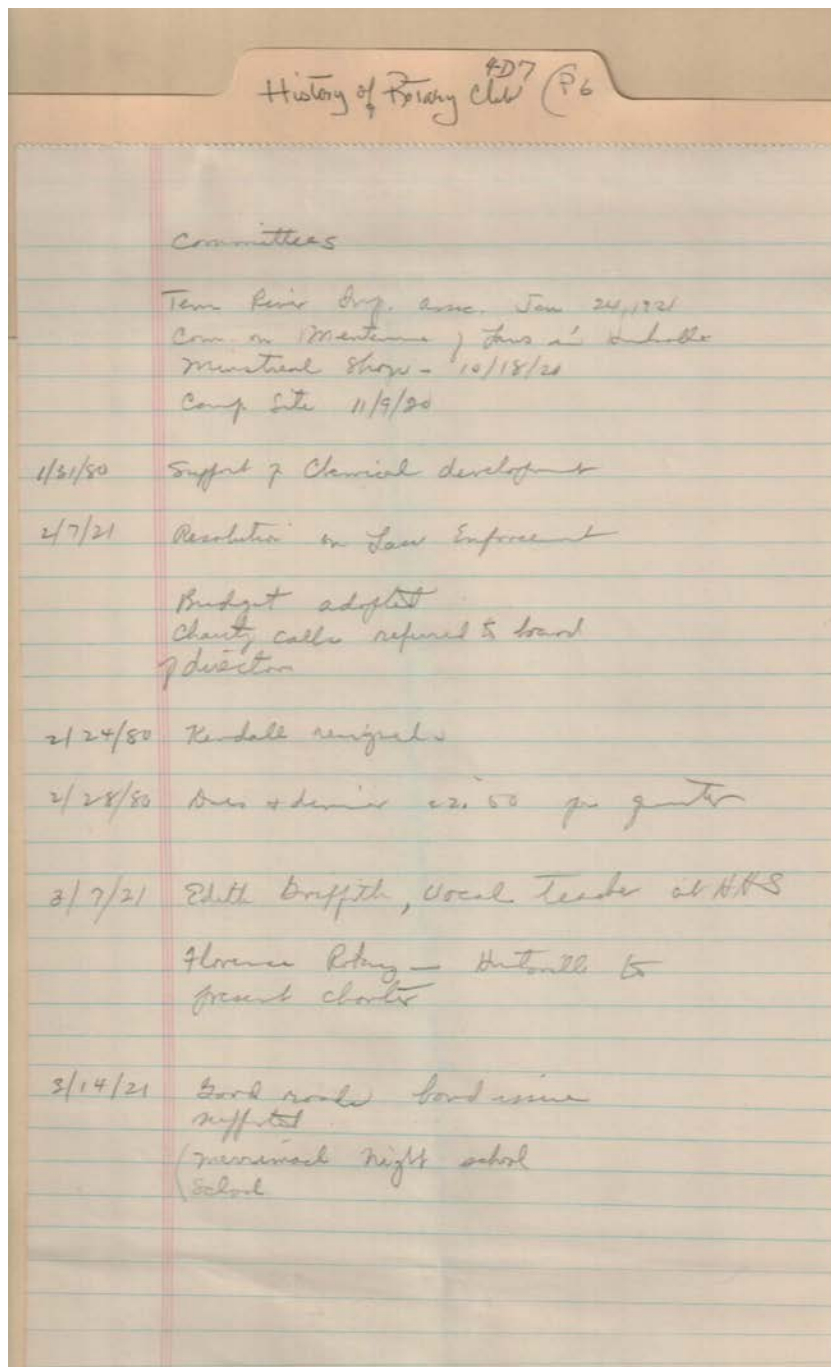 4D7
History of Rotary Club (P6
Committees
Tenn River Imp. assoc. Jan 24, 1921
Com. on of Laws in
Minstreal Show - 10/18/20
Camp Site 11/9/20
1/31/80 Support of Chemical development
2/7/21 Resolution on Law Enforcement
Budget adopted
Charity calls refered to board
of directors
2/24/80 Kendall resigned
2/28/80 Dues + dinner 50 per quarter
3/7/21 Edith Griffith, Vocal Teacher at HHS
Florence Rotary — Huntsville to
present charter
3/14/21 Good roads bond issue
supported
(Merrimack Night school
(School